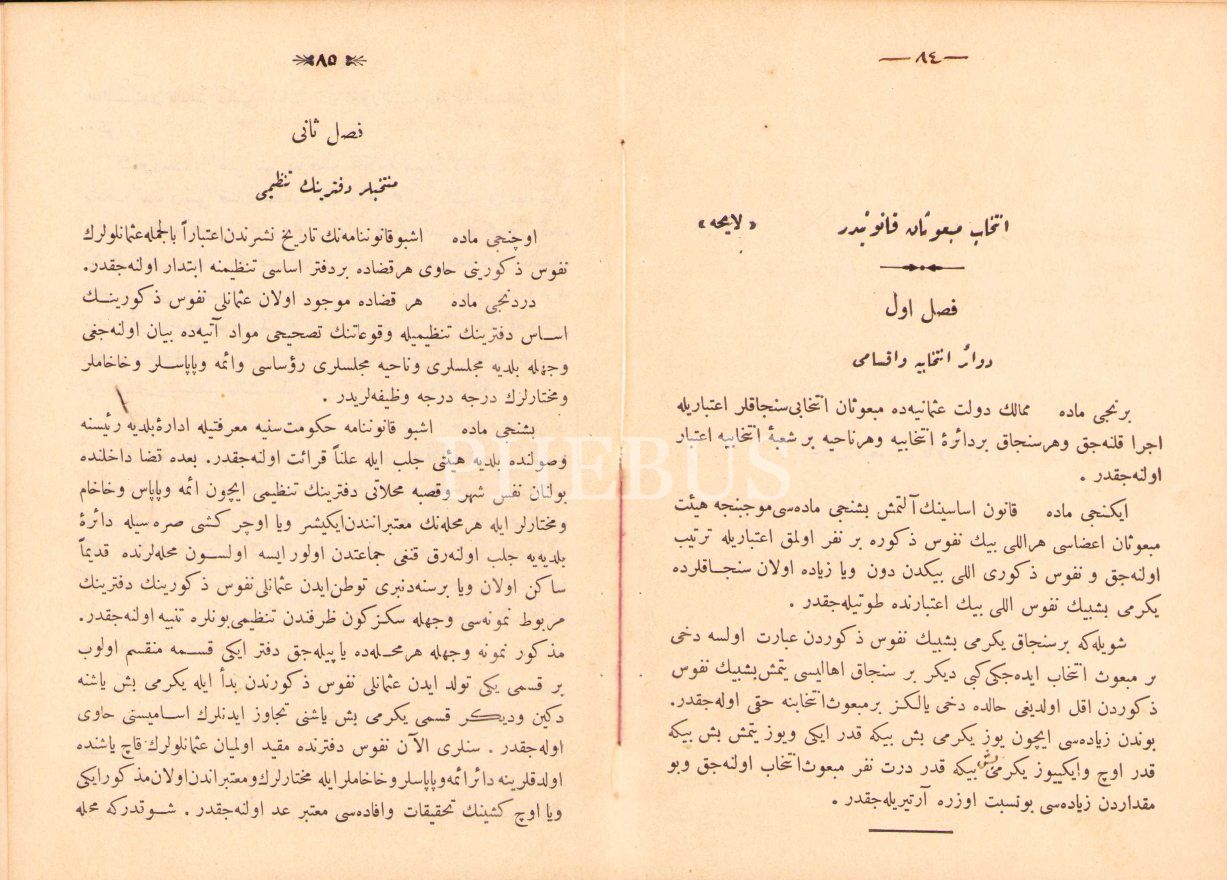 — ٨٤ —
انتخاب مبعوثان قانونيدر « لايحه »
فصل اول
دوائر انتخابيه واقسامى
برنجى ماده ممالك دولت عثمانيه‌ده مبعوثان انتخابى سنجاقلر اعتباريله
اجرا قلنه‌جق وهر سنجاق بردائرهٔ انتخابيه وهر ناحيه بر شعبهٔ انتخابيه اعتبار
اولنه‌جقدر .
ايكنجى ماده قانون اساسينك آلتمش بشنجى ماده‌سى موجبنجه هيئت
مبعوثان اعضاسى هر اللى بيك نفوس ذكوره بر نفر اولمق اعتباريله ترتيب
اولنه‌جق و نفوس ذكورى اللى بيكدن دون ويا زياده اولان سنجاقلرده
يكرمى بشبيك نفوس اللى بيك اعتبارنده طوتيله‌جقدر .
شويله‌كه بر سنجاق يكرمى بشبيك نفوس ذكوردن عبارت اولسه دخى
بر مبعوث انتخاب ايده‌جكى كبى ديكر بر سنجاق اهاليسى يتمش بشبيك نفوس
ذكوردن اقل اولديغى حالده دخى يالكز بر مبعوث انتخابنه حقى اوله‌جقدر.
بوندن زياده‌سى ايچون يوز يكرمى بش بيكه قدر ايكى ويوز يتمش بش بيكه
قدر اوچ وايكييوز يكرمى بش بيكه قدر درت نفر مبعوث انتخاب اولنه‌جق وبو
مقداردن زياده‌سى بونسبت اوزره آرتيريله‌جقدر .
٨٥
فصل ثانى
منتخبلر دفترينك تنظيمى
اوچنجى ماده اشبو قانوننامه‌نك تاريخ نشرندن اعتباراً بالجمله عثمانلولرك
نفوس ذكورينى حاوى هر قضاده بردفتر اساسى تنظيمنه ابتدار اولنه‌جقدر.
دردنجى ماده هر قضاده موجود اولان عثمانلى نفوس ذكورينك
اساس دفترينك تنظيميله وقوعاتنك تصحيحى مواد آتيه‌ده بيان اولنه‌جغى
وجهله بلديه مجلسلرى وناحيه مجلسلرى رؤساسى وائمه وپاپاسلر وخاخاملر
ومختارلرك درجه درجه وظيفه‌لريدر .
بشنجى ماده اشبو قانوننامه حكومت سنيه معرفتيله ادارهٔ بلديه رئيسنه
وصولنده بلديه هيئتى جلب ايله علناً قرائت اولنه‌جقدر. بعده قضا داخلنده
بولنان نفس شهر وقصبه محلاتى دفترينك تنظيمى ايچون ائمه وپاپاس وخاخام
ومختارلر ايله هر محله‌نك معتبرانندن ايكيشر ويا اوچر كشى صره‌سيله دائرهٔ
بلديه‌يه جلب اولنه‌رق قنغى جماعتدن اولور ايسه اولسون محله‌لرنده قديماً
ساكن اولان ويا بر سنه‌دنبرى توطن ايدن عثمانلى نفوس ذكورينك دفترينك
مربوط نمونه‌سى وجهله سكز كون ظرفندن تنظيمى بونلره تنبيه اولنه‌جقدر.
مذكور نمونه وجهله هر محله‌ده ياپيله‌جق دفتر ايكى قسمه منقسم اولوب
بر قسمى يكى تولد ايدن عثمانلى نفوس ذكورندن بدأ ايله يكرمى بش ياشنه
دكين وديكر قسمى يكرمى بش ياشنى تجاوز ايدنلرك اساميسنى حاوى
اوله‌جقدر . سنلرى الآن نفوس دفترنده مقيد اولميان عثمانلولرك قاچ ياشنده
اولدقلرينه دائر ائمه وپاپاسلر وخاخاملر ايله مختارلرك ومعتبراندن اولان مذكور ايكى
ويا اوچ كشينك تحقيقات وافاده‌سى معتبر عد اولنه‌جقدر . شوقدركه محله
PHEBUS